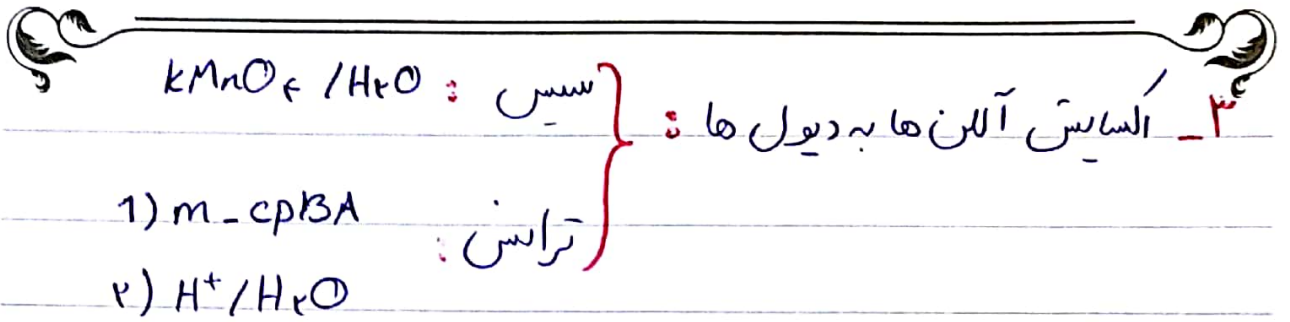 ۳_ اکسایش آلکن ها به دیول ها :
سیس : KMnO۴ /H۲O
ترانس :
1) m_cpBA
۲) H⁺/H۲O